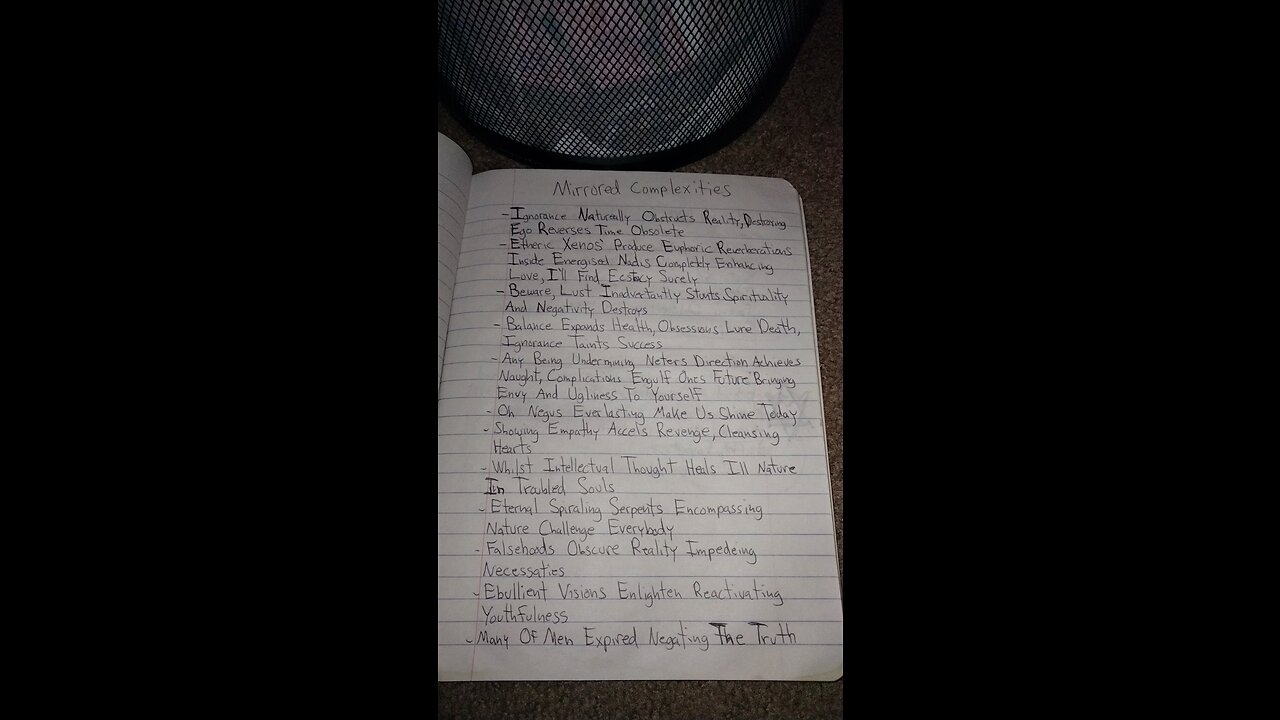 Mirrored Complexities
- Ignorance Naturally Obstructs Reality, Destroring
Ego Reverses Time Obsolete
- Etheric Xenos' Produce Euphoric Reverberations
Inside Energised Nadis Completely Enhancing
Love, I'll Find Ecstacy Surely
- Beware, Lust Inadvertantly Stunts Spirituality
And Negativity Destroys
- Balance Expands Health, Obsessions Lure Death,
Ignorance Taints Success
- Any Being Undermining Neters Direction Achieves
Naught, Complications Engulf Ones Future Bringing
Envy And Ugliness To Yourself
- Oh Negus Everlasting Make Us Shine Today
- Showing Empathy Accels Revenge, Cleansing
Hearts
- Whilst Intellectual Thought Heals Ill Nature
In Troubled Souls
- Eternal Spiraling Serpents Encompassing
Nature Challenge Everybody
- Falsehoods Obscure Reality Impedeing
Necessaties
- Ebullient Visions Enlighten Reactivating
Youthfulness
- Many Of Men Expired Negating The Truth